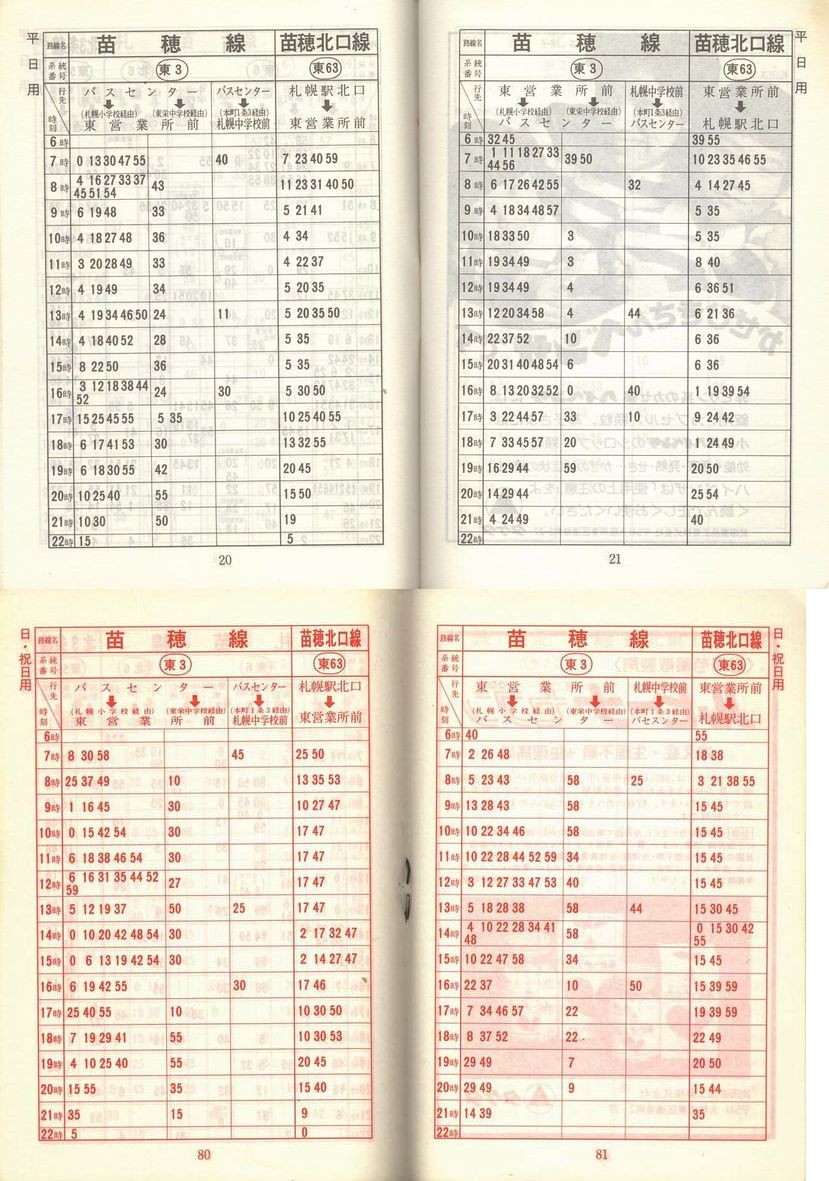 平日用
路線名 苗穂線 苗穂北口線
系統番号 東3 東63
行先 バスセンター バスセンター 札幌駅北口
(札幌小学校経由) (東栄中学校経由) (本町1条3経由)
時刻 東営業所前 札幌中学校前 東営業所前
6時
7時 0 13 30 47 55 40 7 23 40 59
8時 4 16 27 33 37 43 11 23 31 40 50
45 51 54
9時 6 19 48 33 5 21 41
10時 4 18 27 48 36 4 34
11時 3 20 28 49 33 4 22 37
12時 4 19 49 34 5 20 35
13時 4 19 34 46 50 24 11 5 20 35 50
14時 4 18 40 52 28 5 35
15時 8 22 50 36 5 35
16時 3 12 18 38 44 24 30 5 30 50
52
17時 15 25 45 55 5 35 10 25 40 55
18時 6 17 41 53 30 13 32 55
19時 6 18 30 55 42 20 45
20時 10 25 40 55 15 50
21時 10 30 50 19
22時 15 5
20
平日用
路線名 苗穂線 苗穂北口線
系統番号 東3 東63
行先 東営業所前 札幌中学校前 東営業所前
(札幌小学校経由) (東栄中学校経由) (本町1条3経由)
時刻 バスセンター バスセンター 札幌駅北口
6時 32 45 39 55
7時 1 11 18 27 33 39 50 10 23 35 46 55
44 56
8時 6 17 26 42 55 32 4 14 27 45
9時 4 18 34 48 57 5 35
10時 18 33 50 3 5 35
11時 19 34 49 3 8 40
12時 19 34 49 4 6 36 51
13時 12 20 34 58 4 44 6 21 36
14時 22 37 52 10 6 36
15時 20 31 40 48 54 6 6 36
16時 8 13 20 32 52 0 40 1 19 39 54
17時 3 22 44 57 33 10 9 24 42
18時 7 33 45 57 20 1 24 49
19時 16 29 44 59 20 50
20時 14 29 44 25 54
21時 4 24 49 40
22時
21
日・祝日用
路線名 苗穂線 苗穂北口線
系統番号 東3 東63
行先 バスセンター バスセンター 札幌駅北口
(札幌小学校経由) (東栄中学校経由) (本町1条3経由)
時刻 東営業所前 札幌中学校前 東営業所前
6時
7時 8 30 58 45 25 50
8時 25 37 49 10 13 35 53
9時 1 16 45 30 10 27 47
10時 0 15 42 54 30 17 47
11時 6 18 38 46 54 30 17 47
12時 6 16 31 35 44 52 27 17 47
59
13時 5 12 19 37 50 25 17 47
14時 0 10 20 42 48 54 30 2 17 32 47
15時 0 6 13 19 42 54 30 2 14 27 47
16時 6 19 42 55 30 17 46
17時 25 40 55 10 10 30 50
18時 7 19 29 41 55 10 30 53
19時 4 10 25 40 55 20 45
20時 15 55 35 15 40
21時 35 15 9
22時 5 0
80
日・祝日用
路線名 苗穂線 苗穂北口線
系統番号 東3 東63
行先 東営業所前 札幌中学校前 東営業所前
(札幌小学校経由) (東栄中学校経由) (本町1条3経由)
時刻 バスセンター バスセンター 札幌駅北口
6時 40 55
7時 2 26 48 18 38
8時 5 23 43 58 25 3 21 38 55
9時 13 28 43 58 15 45
10時 10 22 34 46 58 15 45
11時 10 22 28 44 52 59 34 15 45
12時 3 12 27 33 47 53 40 15 45
13時 5 18 28 38 58 44 15 30 45
14時 4 10 22 28 34 41 58 0 15 30 42
48 55
15時 10 22 47 58 34 15 45
16時 22 37 10 50 15 39 59
17時 7 34 46 57 22 19 39 59
18時 8 37 52 22 22 49
19時 29 49 7 20 50
20時 29 49 9 15 44
21時 14 39 35
22時
81